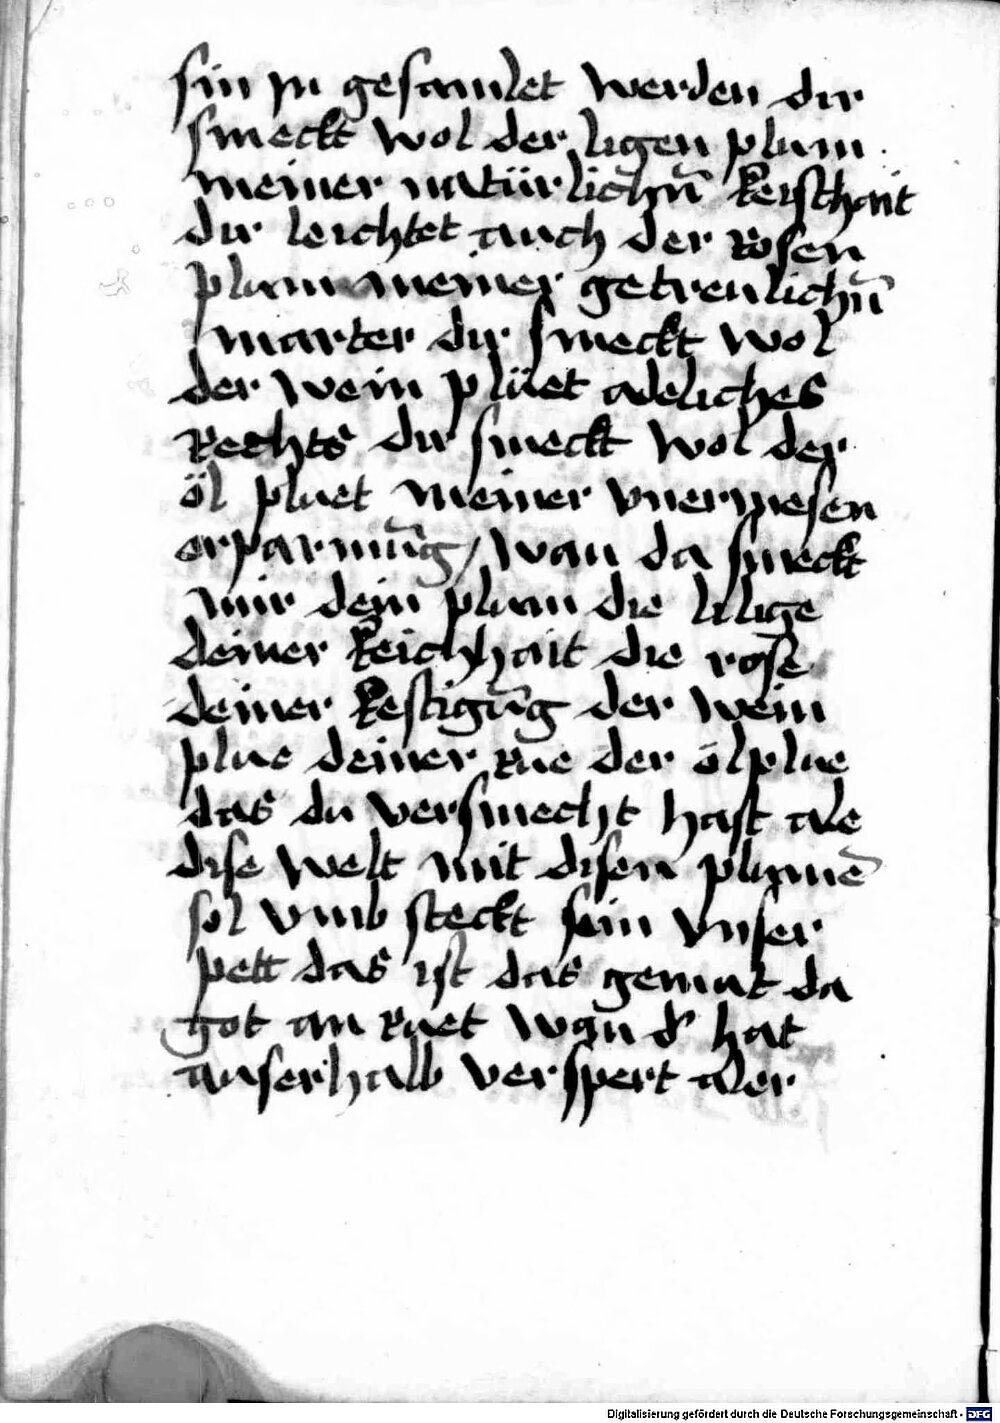 sin zu gesamlet werden dir
smeckt wol der ligen plum
meiner natürlichn̄ keischait
dir leichtet auch der rosen
plum meiner getreulichn̄
marter dir smeckt wol
der wein plüet adeliches
Rechts dir smeckt wol der
öl pluet meiner vnermesen
erparmūg / wan da smeckt
mir dein plum die lilige
deiner keichhait die rose
deiner kestigūg der wein
plue deiner rue der ölplue
das du versmecht hast ale
dise welt mit disen plumē
sol vmb steckt sein vnser
pett das ist das gemut da
got an ruet wan d' hat
auserhalb verspert aler
Digitalisierung gefördert durch die Deutsche Forschungsgemeinschaft - DFG